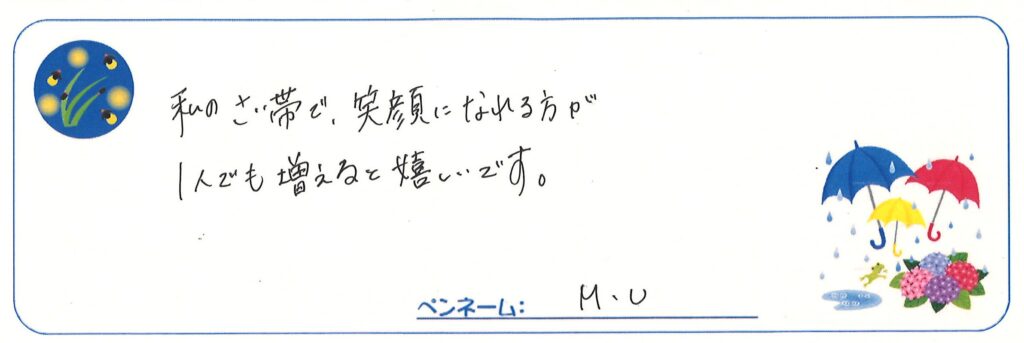 私のさい帯で、笑顔になれる方が
1人でも増えると嬉しいです。
ペンネーム: M.U